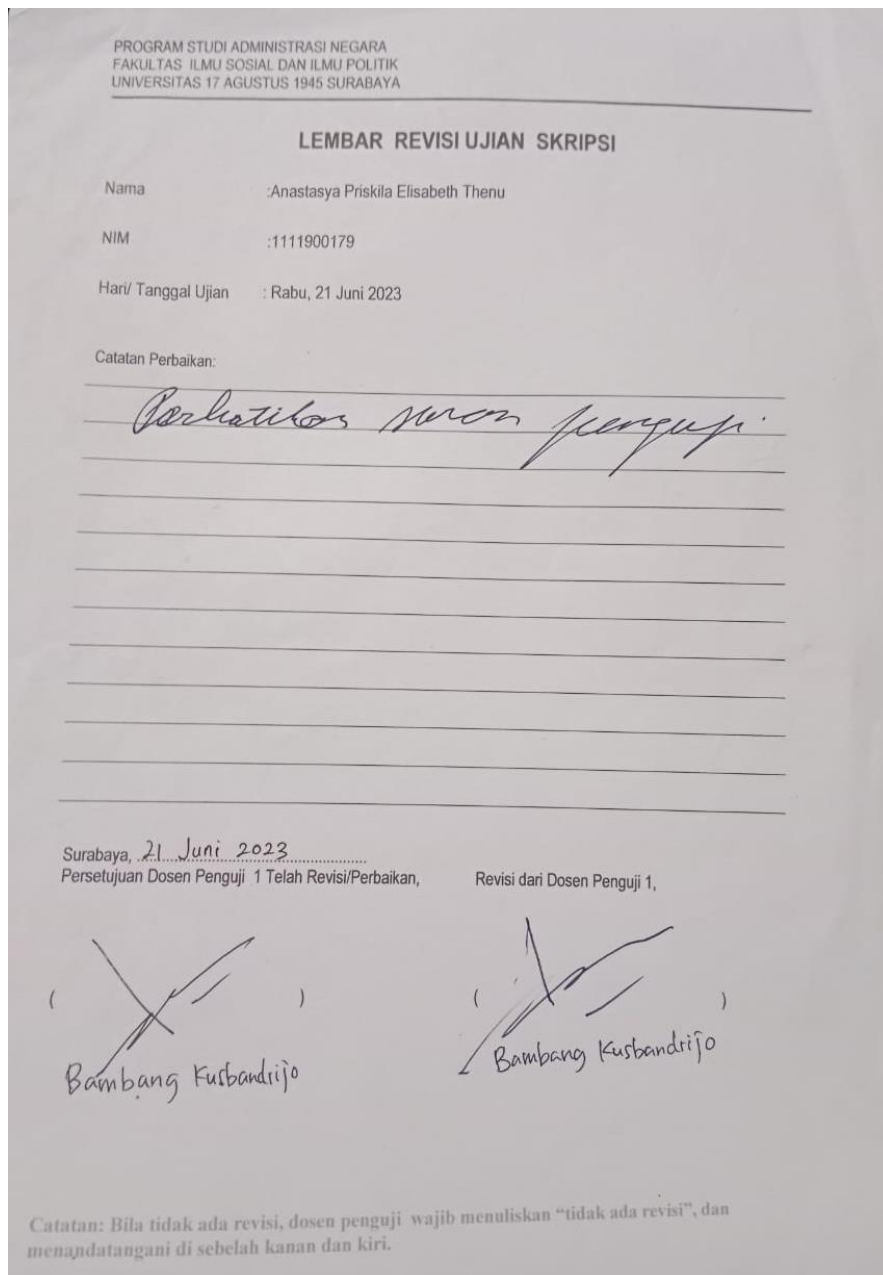 PROGRAM STUDI ADMINISTRASI NEGARA
FAKULTAS ILMU SOSIAL DAN ILMU POLITIK
UNIVERSITAS 17 AGUSTUS 1945 SURABAYA
LEMBAR REVISI UJIAN SKRIPSI
Nama :Anastasya Priskila Elisabeth Thenu
NIM :1111900179
Hari/ Tanggal Ujian : Rabu, 21 Juni 2023
Catatan Perbaikan:
Perhatikan saran penguji.
Surabaya, 21 Juni 2023
Persetujuan Dosen Penguji 1 Telah Revisi/Perbaikan, Revisi dari Dosen Penguji 1,
( ) ( )
Bambang Kusbandrijo Bambang Kusbandrijo
Catatan: Bila tidak ada revisi, dosen penguji wajib menuliskan “tidak ada revisi”, dan
menandatangani di sebelah kanan dan kiri.